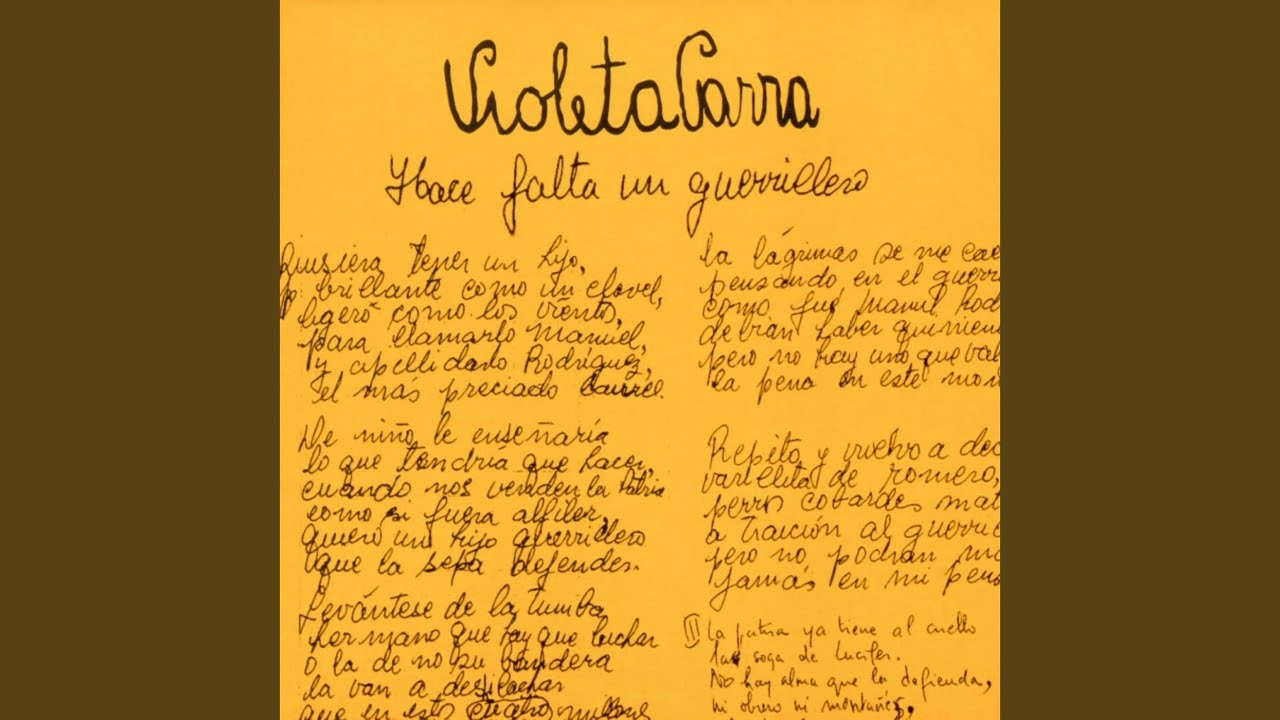 Violeta Parra
Hace falta un guerrillero
Quisiera tener un hijo,
brillante como un clavel,
ligero como los vientos,
para llamarlo Manuel,
y apellidarlo Rodríguez,
el más preciado laurel.
De niño le enseñaría
lo que tendría que hacer,
cuando nos venden la Patria
como si fuera alfiler,
quiero un hijo guerrillero
que la sepa defender.
Levántese de la tumba
hermano que hay que luchar
o la de no su bandera
la van a desilachar
que en esto cuatro millone
la lágrimas se me cae
pensando en el guerri
como fue Manuel Rod
debían haber quinien
pero no hay uno que val
la pena en este mom
Repito y vuelvo a dec
varillita de romero,
perros cobardes mat
a traición al guerri
pero no podrán ma
jamás en mi pens
II La patria ya tiene al cuello
la soga de Lucifer.
No hay alma que la defienda,
ni obrero ni montañés,